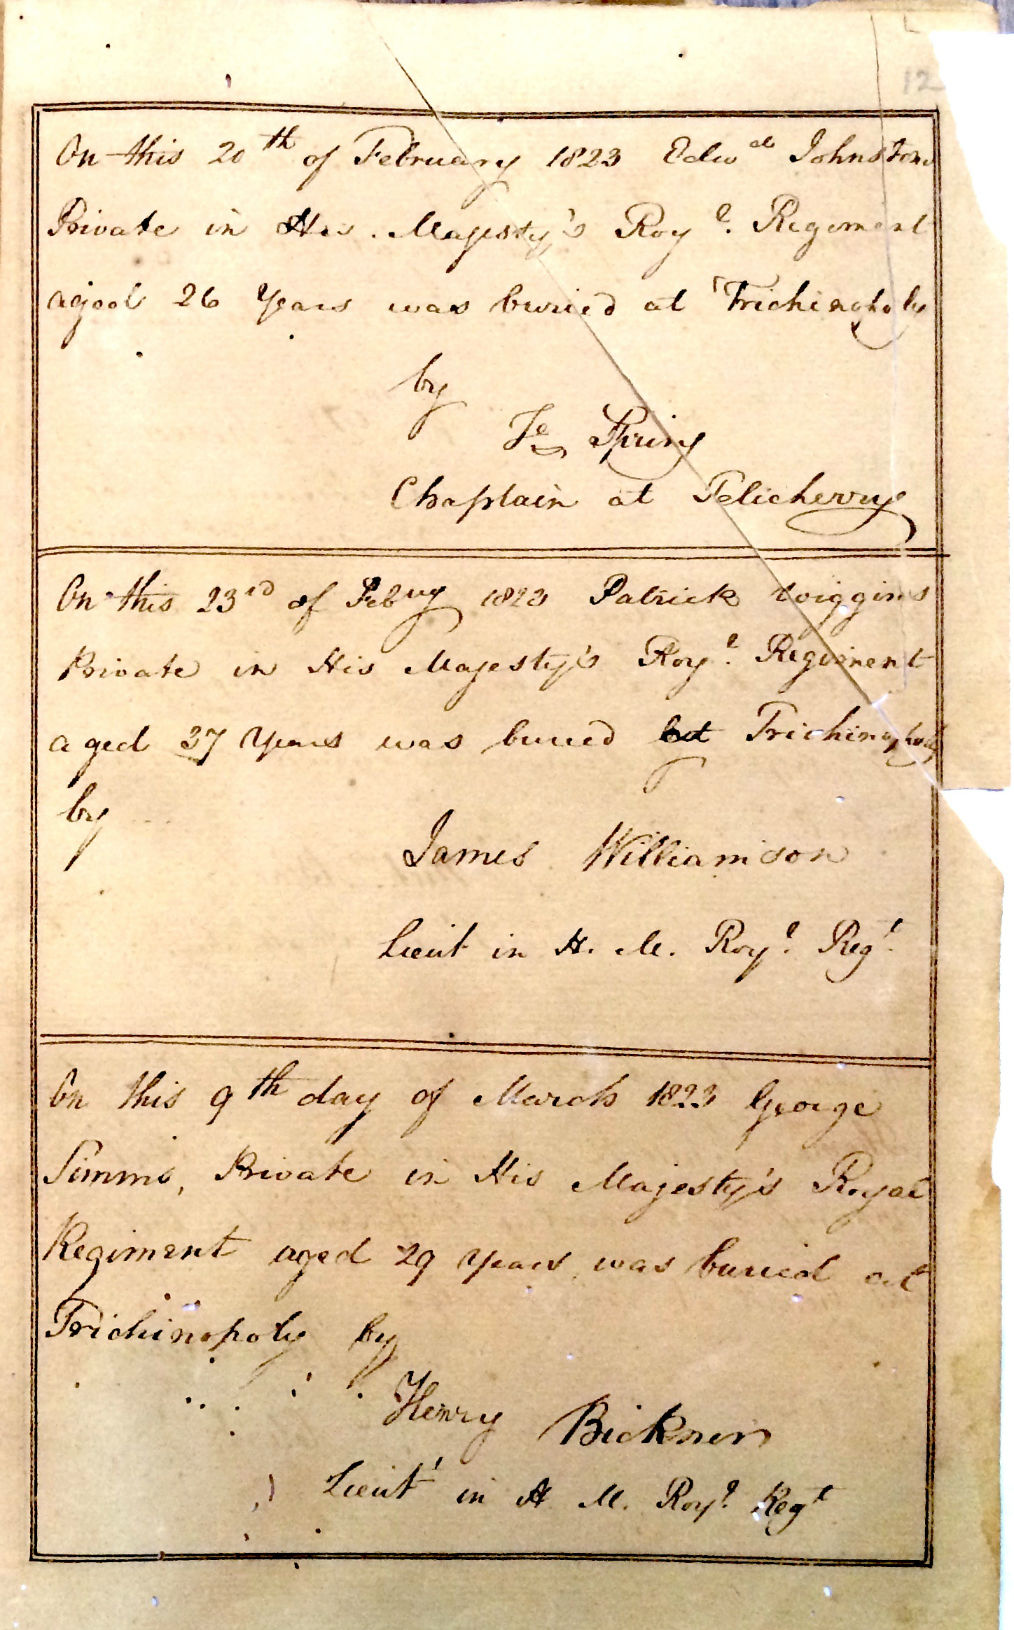 12
On this 20th of February 1823 Edwd Johnston
Private in His Majesty's Royl. Regiment
aged 26 Years was buried at Trichinopoly
by
Fs Spring
Chaplain at Telicherry
On this 23rd of Febuy 1823 Patrick Wiggins
Private in His Majesty's Royl. Regiment
aged 37 Years was buried at Trichinopoly
by
James Williamson
Lieut in H. M. Royl. Regt.
On this 9th day of March 1823 George
Simms, Private in His Majesty's Royal
Regiment aged 29 years was buried at
Trichinopoly by
Henry Bickner
Lieut in H M. Royl. Regt